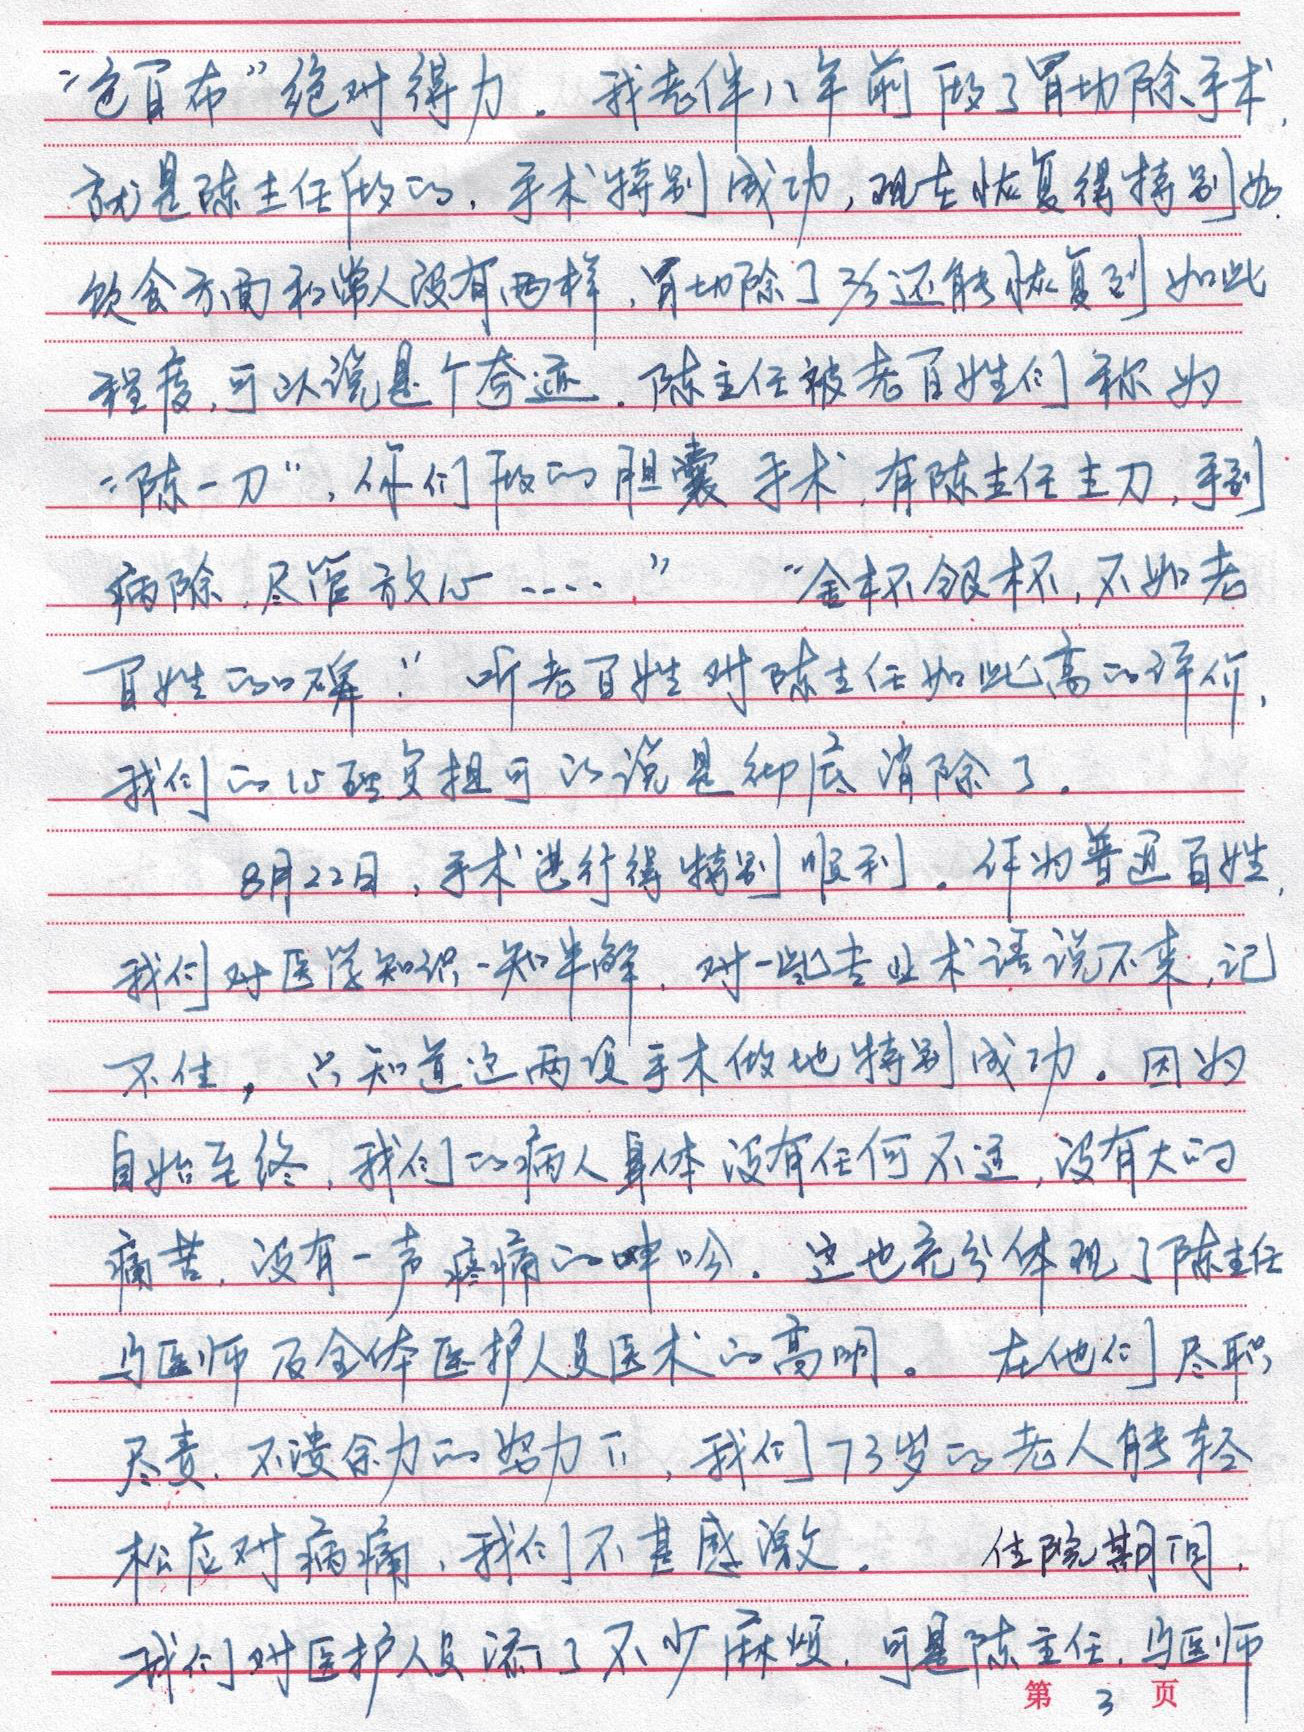 “包百布”绝对得力。我老伴八年前做了胃切除手术，
就是陈主任做的，手术特别成功，现在恢复得特别好，
饮食方面和常人没有两样，胃切除了2/3还能恢复到如此
程度，可以说是个奇迹。陈主任被老百姓们称为
“陈一刀”，你们做的胆囊手术，有陈主任主刀，手到
病除，尽管放心……” “金杯银杯，不如老
百姓的口碑！”听老百姓对陈主任如此高的评价，
我们的心理负担可以说是彻底消除了。
8月22日，手术进行得特别顺利。作为普通百姓，
我们对医学知识一知半解，对一些专业术语说不来，记
不住，只知道这两项手术做地特别成功。因为
自始至终，我们的病人身体没有任何不适，没有大的
痛苦，没有一声疼痛的呻吟。这也充分体现了陈主任
马医师及全体医护人员医术的高明。 在他们尽职
尽责，不遗余力的努力下，我们73岁的老人能轻
松应对病痛，我们不甚感激。 住院期间，
我们对医护人员添了不少麻烦，可是陈主任，马医师
第 3 页